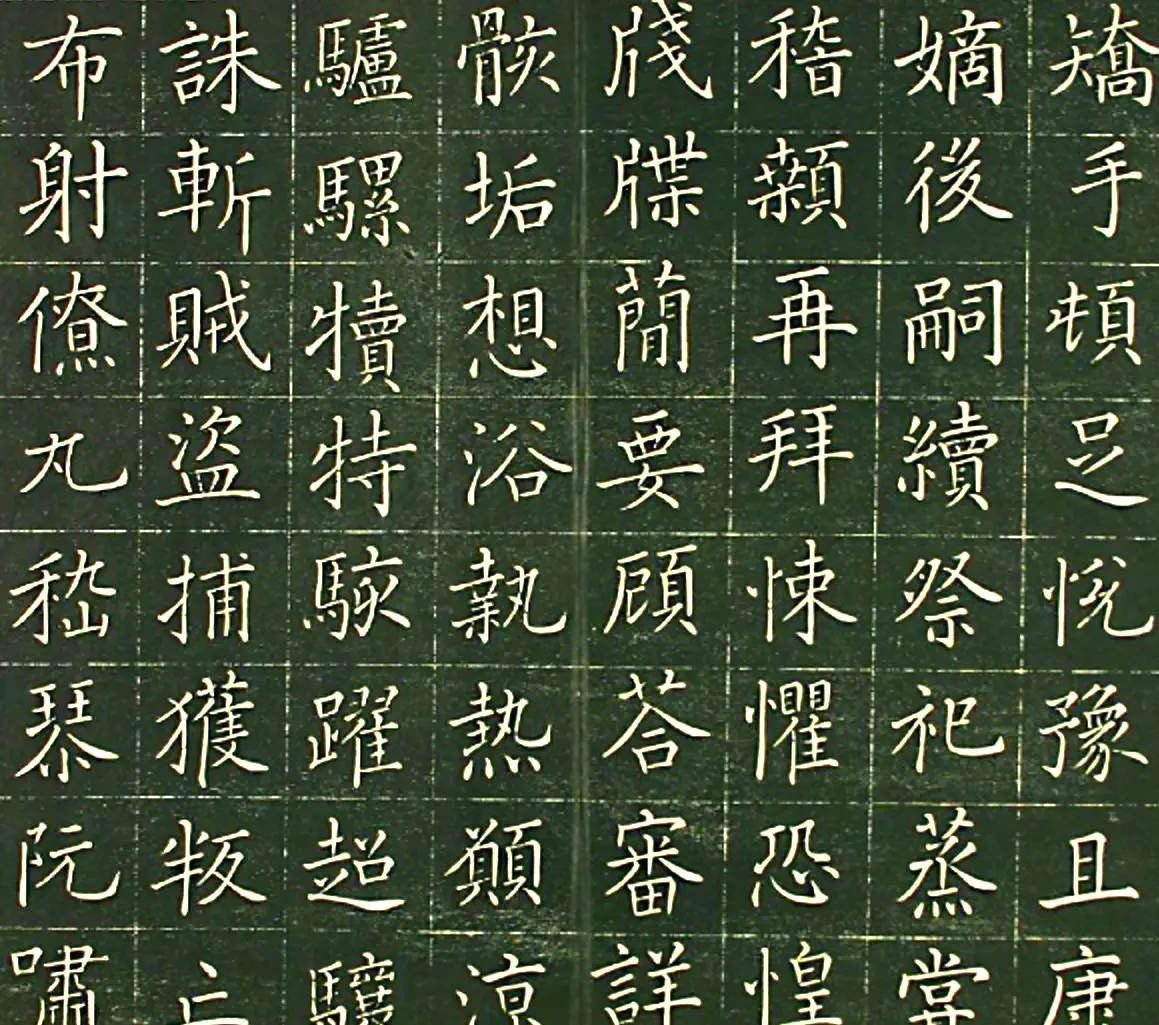 矯手頓足悅豫且康
嫡後嗣續祭祀蒸甞
稽顙再拜悚懼恐惶
牋牒簡要顧荅審詳
骸垢想浴執熱願凉
驢騾犢特駭躍超驤
誅斬賊盜捕獲叛亡
布射僚丸嵇琴阮嘯